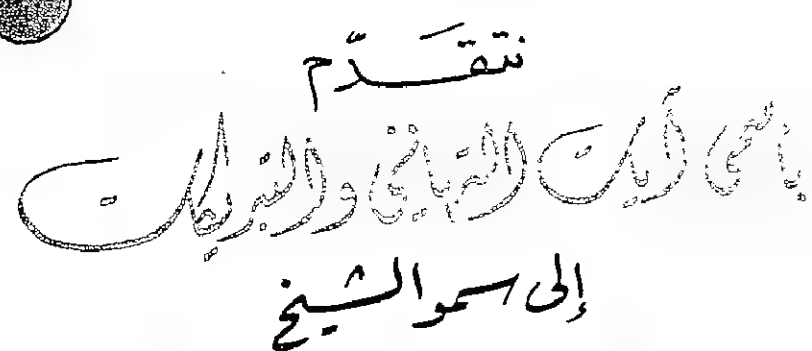 نتقدّم
بأسمى آيات التهاني والتبريكات
إلى سمو الشيخ